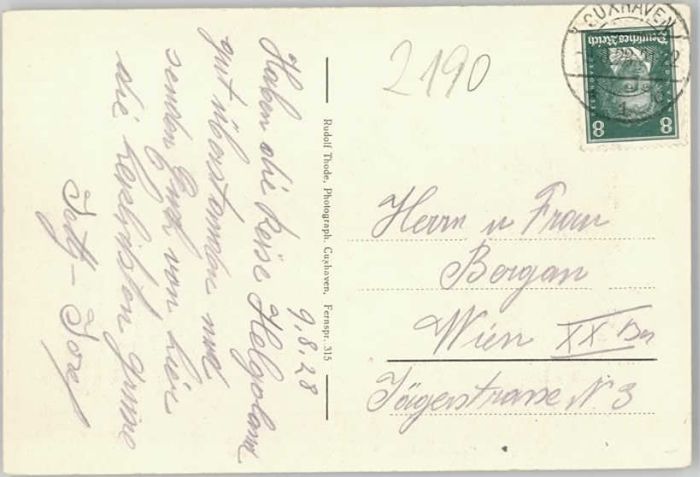 9.8.28
Haben die Reise Helgoland
gut überstanden und
senden Euch von hier
die herzlichsten Grüsse
Josef
2190
CUXHAVEN
Deutsches Reich
8 8
Herrn u Frau
Bergan
Wien XX Bez
Jägerstrasse N 3
Rudolf Thode, Photograph, Cuxhaven, Fernspr. 315